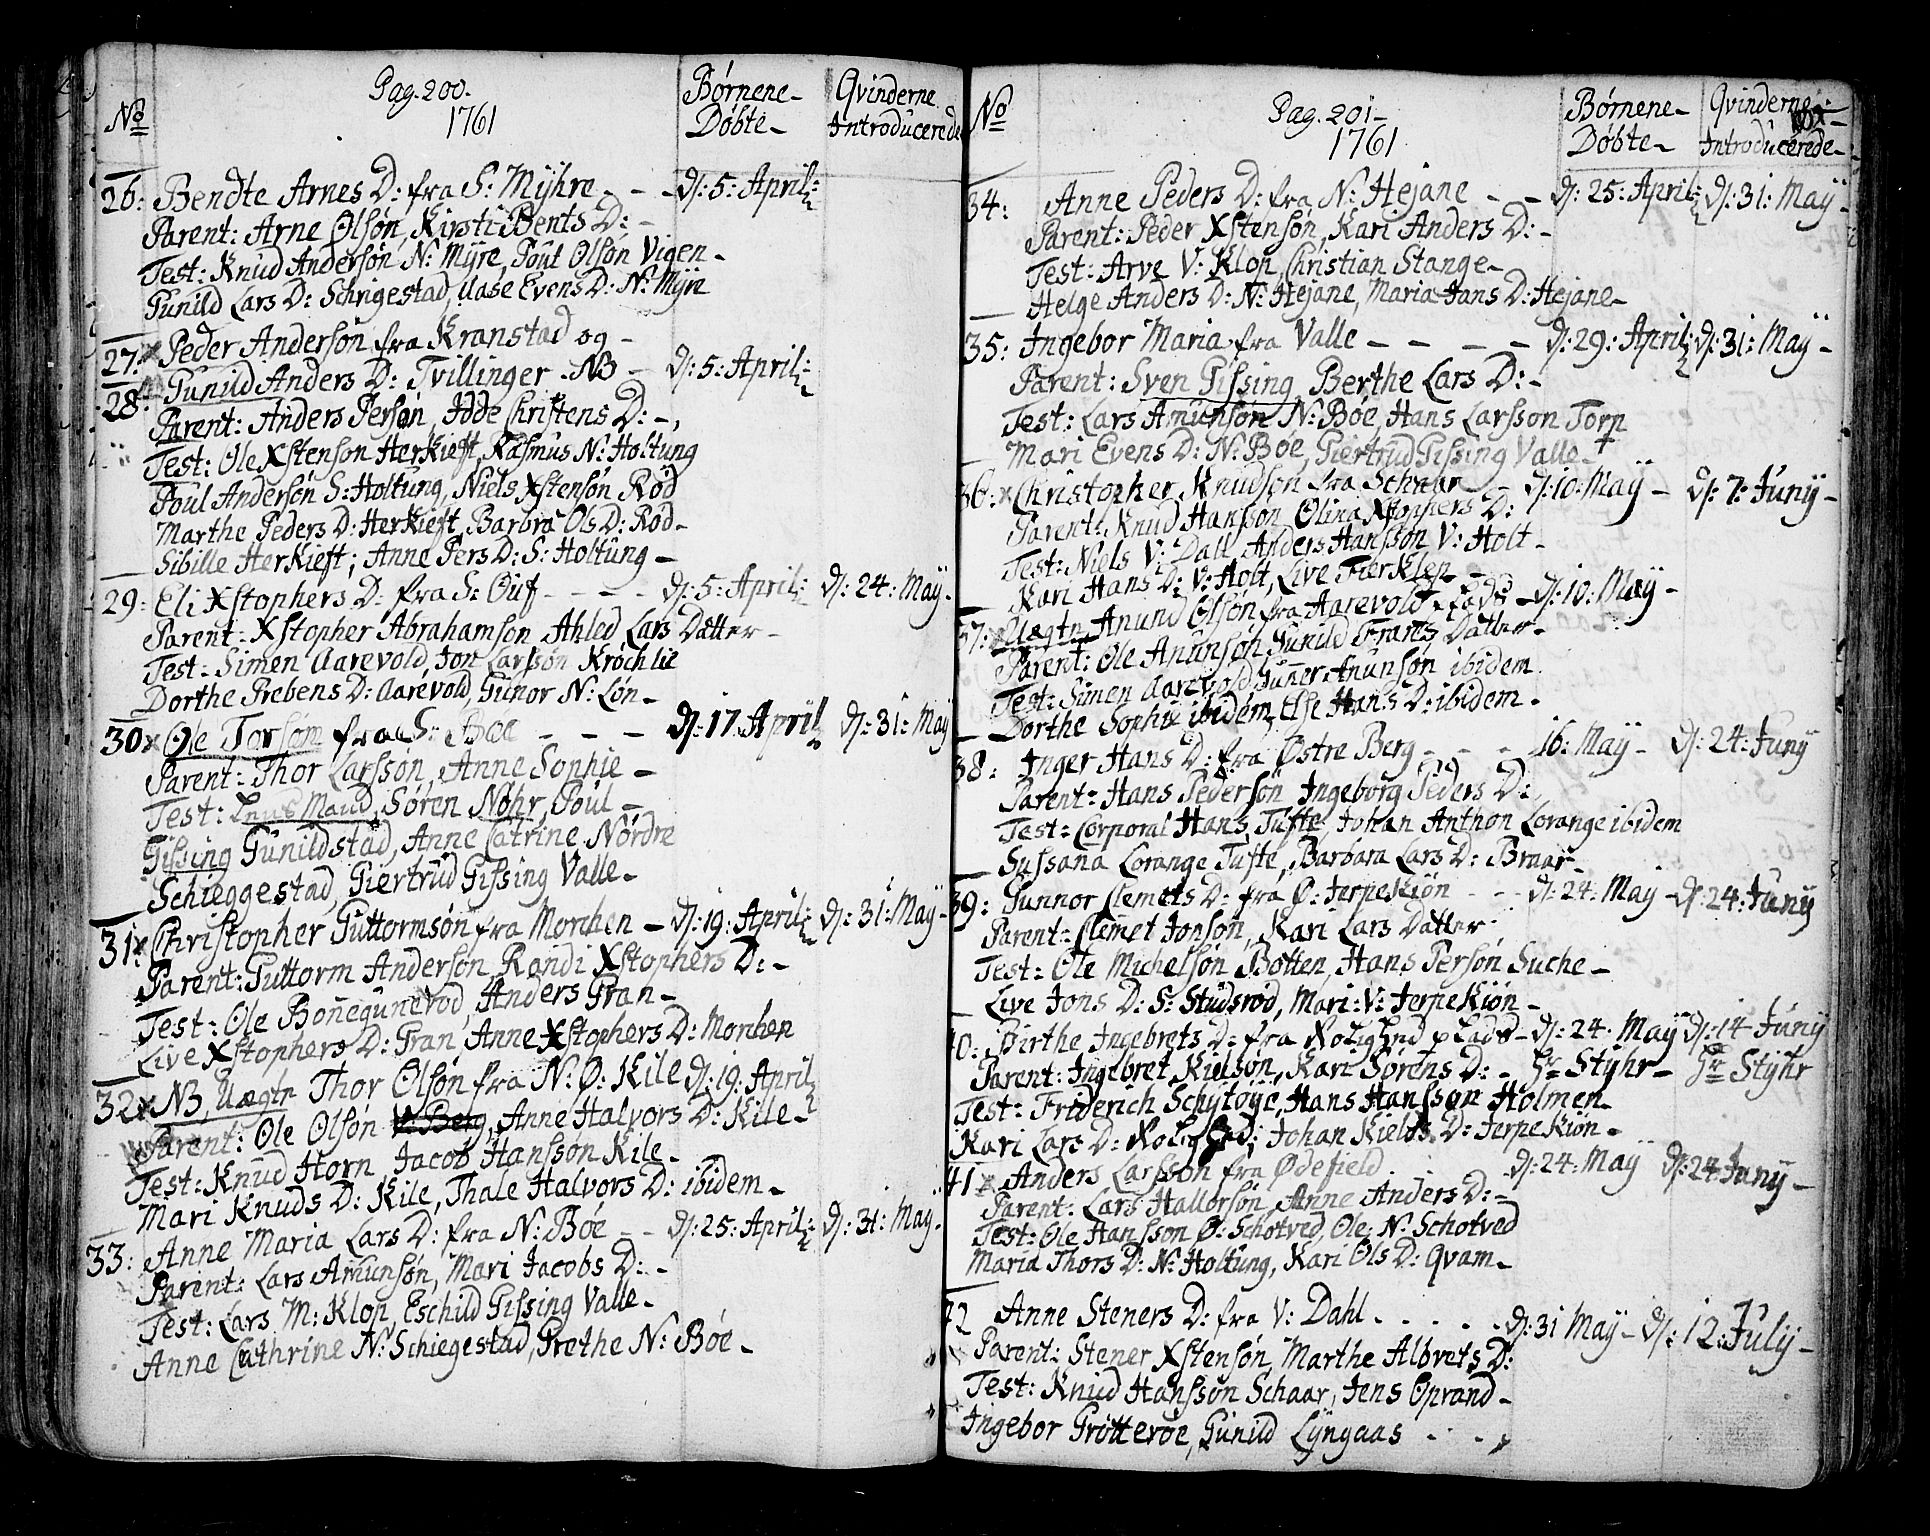 Pag. 200.
No 1761 Børnene Døbte Qvinderne Introducerede
26: Bendte Arnes D: fra S: Mÿhre - - - d: 5: April:
Parent: Arne Olsøn, Kirsti Bents D: -
Test: Knud Andersøn N: Mÿre, Poul Olsøn Vigen -
Gunild Lars D: Schrigestad, Aase Evens D: N: Mÿre
27: x Peder Andersøn fra Kranstad og -
28: Gunild Anders D: Tvillinger - NB - d: 5: April:
Parent: Anders Persøn, Idde Christens D: -
Test: Ole Xstenson Herkieft, Rasmus N: Holtung
Poul Andersøn S: Holtung, Niels Xstensøn Rød
Marthe Peders D: Herkieft, Barbra Ols D: Rød -
Sibille Herkieft; Anne Pers D: S: Holtung -
29: Eli Xstophers D: fra S: Ouf - - - - d: 5: April: d: 24: Maÿ -
Parent: Xstopher Abrahamson, Ahled Lars Datter -
Test: Simen Aarevold, Jon Larssøn Krochlie
Dorthe Prebens D: Aarevold, Gunor N: Løn -
30 x Ole Torsøm fra S: Bøe - - - d: 17. April d: 31: Maÿ
Parent: Thor Larsson, Anne Sophie -
Test: Maud, Søren Nøhr, Poul -
Gissing Gunildstad, Anne Catrine Nordre
Schieggestad, Giertrud Gissing Valle -
31: x Christopher Guttormsøn fra Morchen - d: 19: April: d: 31: Maÿ -
Parent: Guttorm Anderson, Randi Xstophers D: -
Test: Ole Bonegunerød, Anders Gran -
Live Xstophers D: Gran, Anne Xstophers D: Morchen
32 x NB, Uægtn Thor Olsøn fra N: Ø: Kile d: 19: April
Parent: Ole Olsøn , Anne Halvors D: Kile -
Test: Knud Horn, Jacob Hanssøn Kile -
Mari Knuds D: Kile, Thale Halvors D: ibidem -
33: Anne Maria Lars D: fra N: Bøe - - d: 25: April: d: 31: Maÿ -
Parent: Lars Amunsøn, Mari Jacobs D: -
Test: Lars M: Klop, Eschild Gissing Valle -
Anne Cathrine N: Schiegestad, Grethe N: Bøe -
Pag. 201 -
No 1761 Børnene Døbte - Qvinderne Introducerede -
34: Anne Peders D: fra N: Hejane - - d: 25: April: d: 31: Maÿ -
Parent: Peder Xstensøn, Kari Anders D: -
Test: Arve V: Klop, Christian Stange -
Helge Anders D: N: Hejane, Maria Jans D: Hejane -
35: Ingebor Maria fra Valle - - - - d: 29: April: d: 31: Maÿ -
Parent: Sven Gissing, Berthe Lars D: -
Test: Lars Amunsøn N: Bøe, Hans Larsson Torp
Mari Evens D: N: Boe, Giertrud Gissing Valle -
36: x Christopher Knudsøn fra Schaar - d: 10: Maÿ - d: 7: Junÿ -
Parent: Knud Hansson Olina Xstophers D:
Test: Niels V: Dall, Anders Hansson V: Holt -
Kari Hans D: V: Holt, Live Fierklep -
37: Uægtn Anund Olsøn fra Aarevold Plads - d: 10: Maÿ -
Parent: Ole Anunson Gunild Frants Datter -
Test: Simen Aarevold Gunner Anunsøn ibidem
Dorthe Sophie ibidem, Else Hans D: ibidem -
38: Inger Hans D: fra Østre Berg - - - 16: Maÿ - d: 24: Junÿ
Parent: Hans Pedersøn Ingeborg Peders D:
Test: Corporal Hans Tufte, Johan Anthon Lorange ibidem
Sussana Lorange Tufte, Barbara Lars D: Braar -
39: Gunnor Clemets D: fra Ø: Jerpekiøn - - - d: 24: Maÿ - d: 24: Junÿ
Parent: Clemet Jonson, Kari Lars Datter
Test: Ole Michelsøn Botten, Hans Persøn Suche -
Live Jons D: S: Studsrød, Mari: V: Jerpekiøn -
40: Birthe Ingebrets D: fra Rolighed plads - d: 24: Maÿ d: 14 Junÿ
Parent: Ingebret Kielsøn, Kari Sørens D: - Hr Stÿhr - Hr Stÿhr
Test: Friderich Schÿtøÿe, Hans Hansson Holmen -
Kari Lars D: Rolighed; Johan Kields D: Jerpekiøn -
41 x Anders Larsson fra Ødefield . . . d: 24: Maÿ d: 24 Junÿ -
Parent: Lars Hallorsøn, Anne Anders D: -
Test: Ole Hansson Ø: Schotved, Ole N: Schotved
Maria Thors D: N: Holtung, Kari Ols D: Qvam -
42 Anne Steners D: fra V: Dahl . . . . . d: 31 Maÿ - d: 12: Julÿ -
Parent: Stener Xstensøn, Marthe Albrets D:
Test: Knud Hansson Schaar, Jens Oprand -
Ingebor Grotterøe, Gunild Lÿngaas - - -